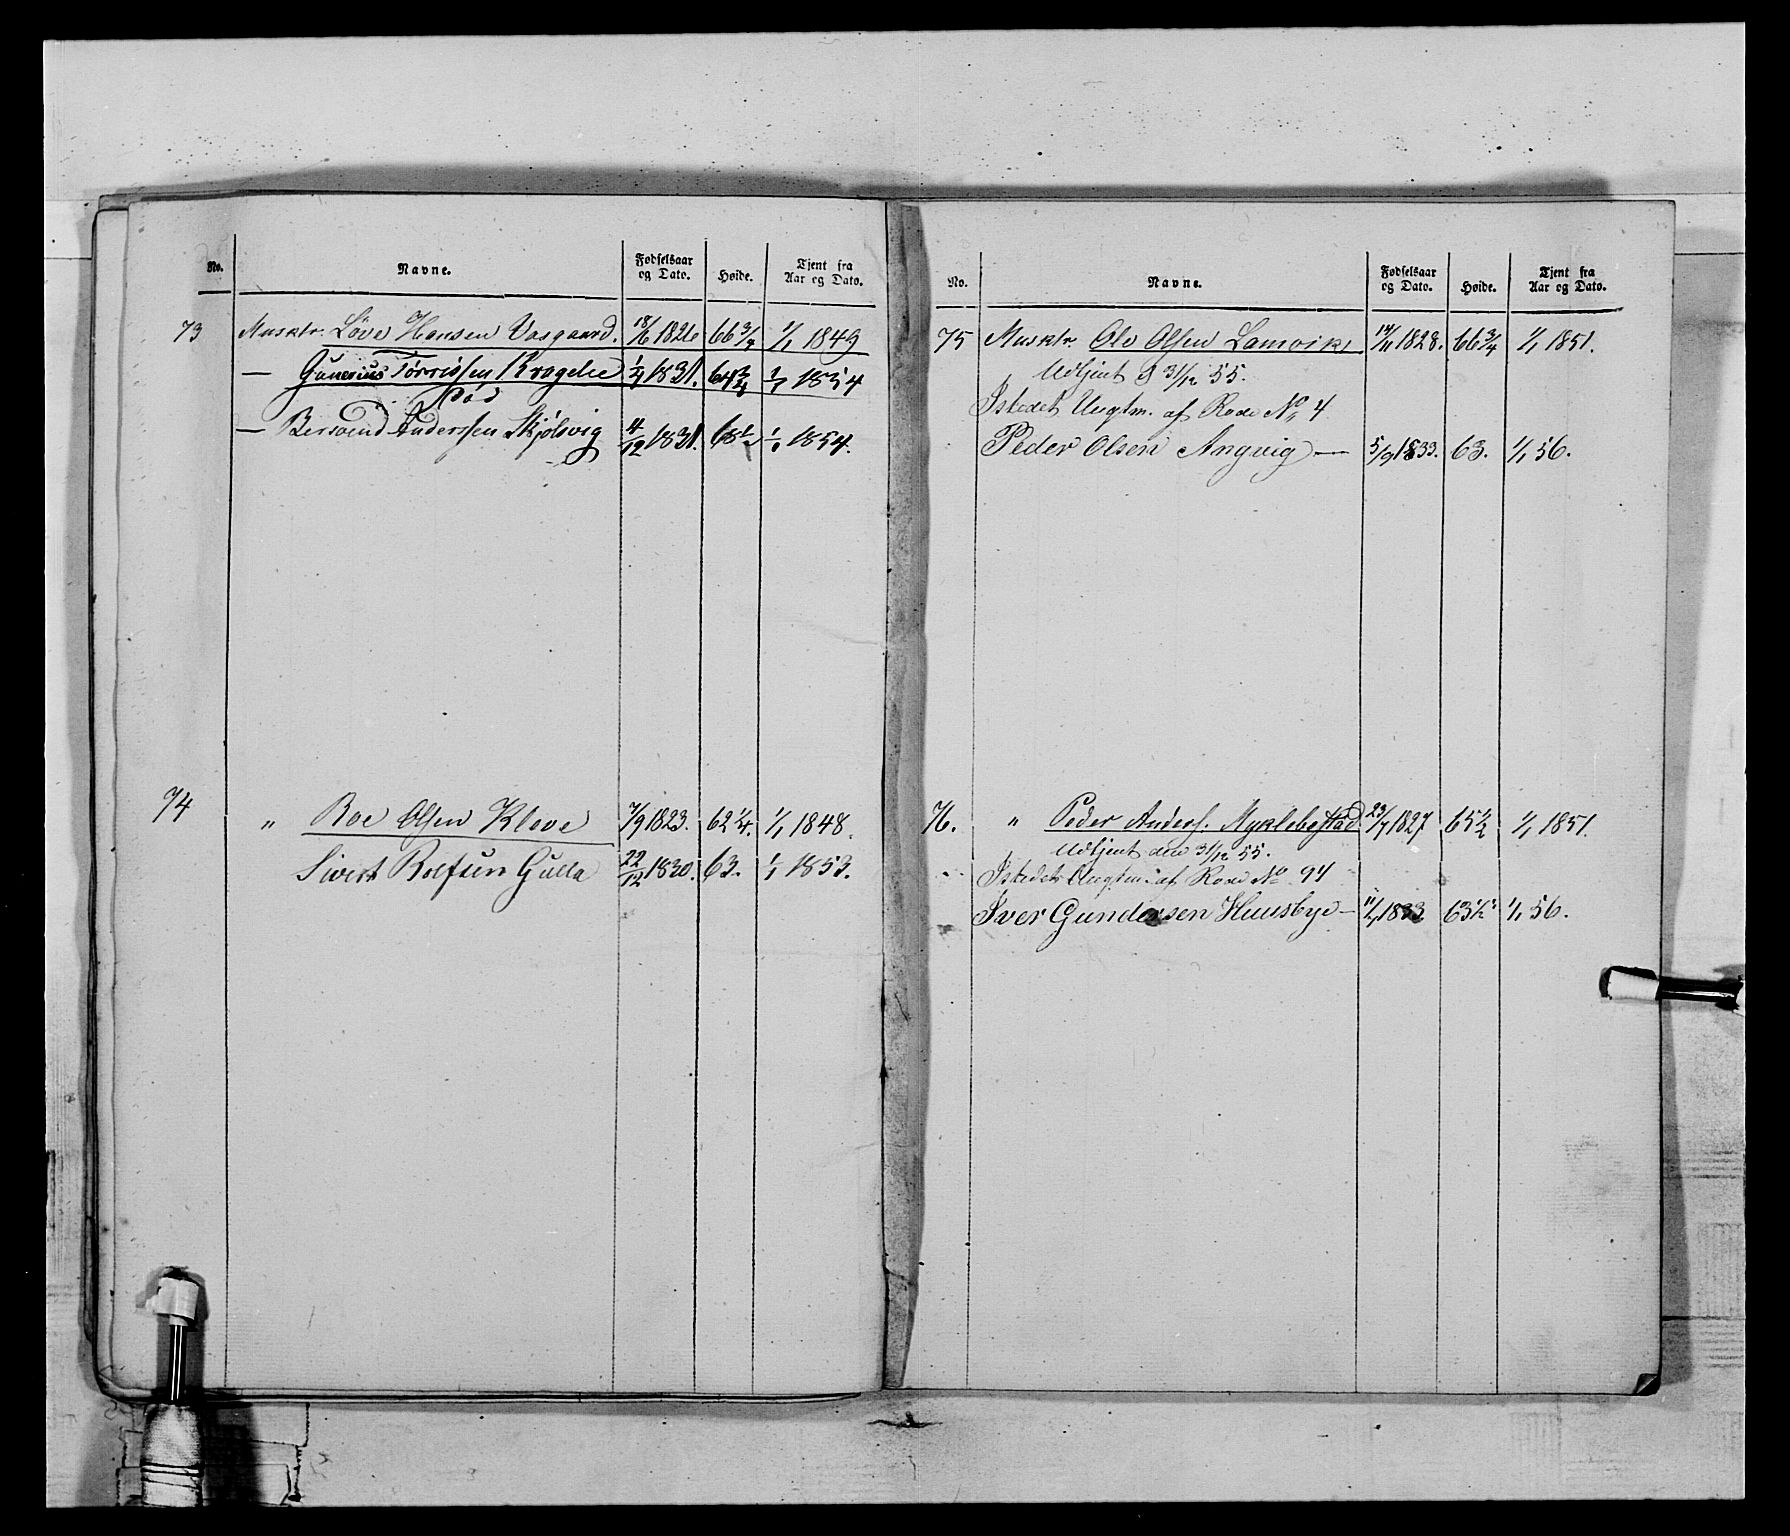 No. Navne. Fødselsaar og Dato. Høide. Tjent fra Aar og Dato.
73 Musktr. Løve Hansen Vasgaard. 18/6 1826 66 3/4 1/1 1849
— Gunerius Tørrissen Kragelie 1/4 1831. 64 3/4 1/1 1854
Død
— Bersvend Anderssen Skjølsvig 4/12 1831. 1/1 1854.
74 " Roe Olsen Kleve 7/9 1823. 62 1/4. 1/1 1848.
Sivert Rolfsen Gulla 22/12 1830. 63. 1/1 1853.
No. Navne. Fødselsaar og Dato. Høide. Tjent fra Aar og Dato.
75 Musktr. Ole Olsen Lamvik 14/11 1828. 66 3/4 1/1 1851.
Udtjent d 31/12 55.
Istedet Ungtm. af Rode No 4
Peder Olsen Angvig — 5/9 1833. 63. 1/1 56.
76. " Peder Anders. Myklebostad 23/7 1827 65 1/2 1/1 1851.
Udtjent den 31/12 55.
Istedet Ungtm. af Rode No 94
Iver Gundersen Huusbye — 11/1 1833 63 1/2 1/1 56.